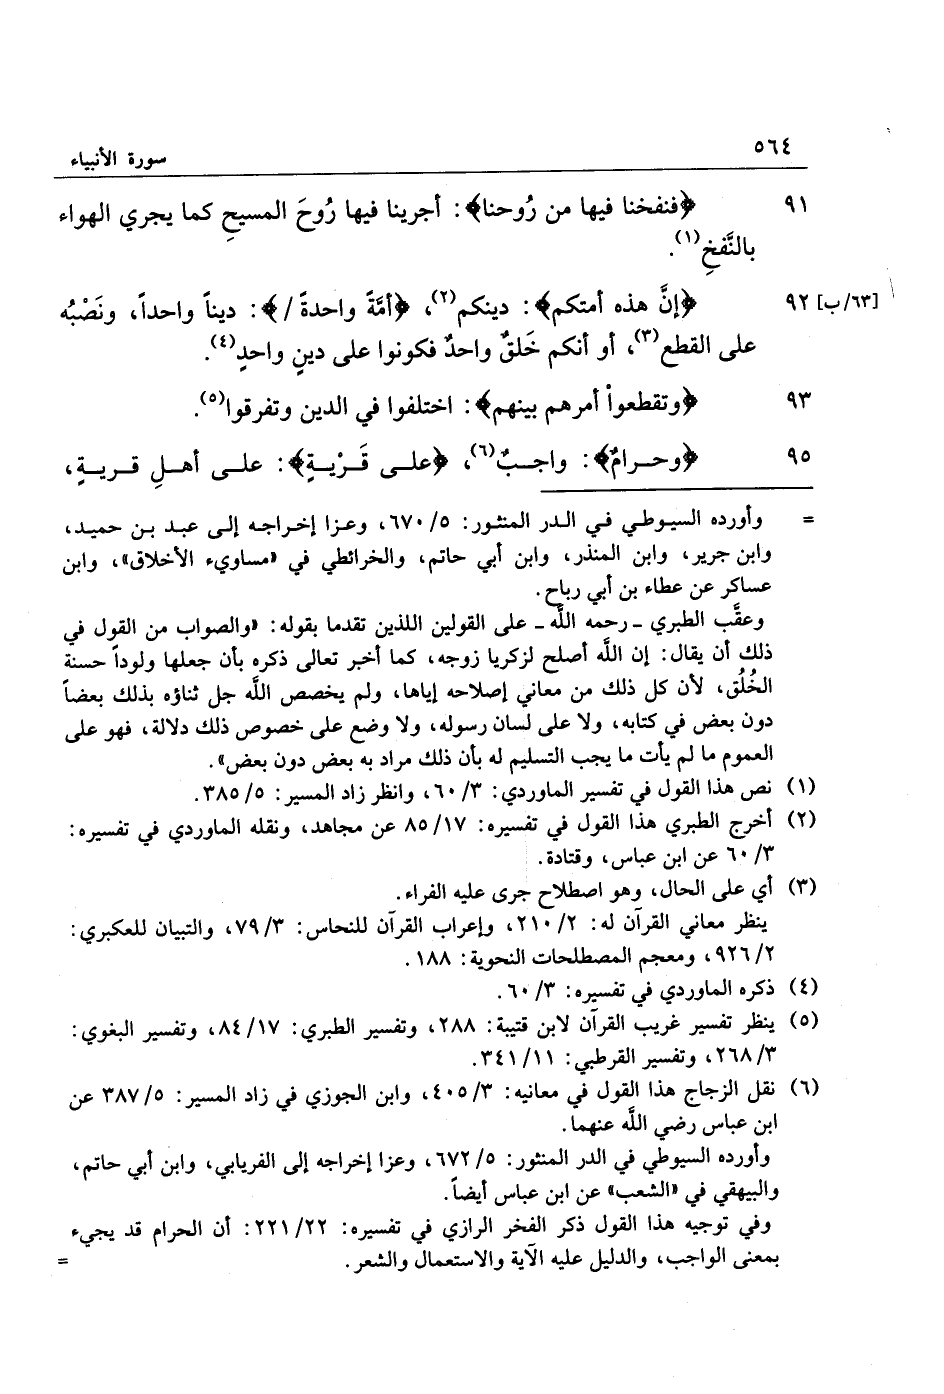 ٥٦٤
سورة الأنبياء
٩١ ﴿فنفخنا فيها من رُوحنا﴾: أجرينا فيها رُوحَ المسيحِ كما يجري الهواء
بالنَّفخِ(١).
[٦٣/ب] ٩٢ ﴿إنَّ هذه أمتكم﴾: دينكم(٢)، ﴿أمَّةً واحدةً/﴾: ديناً واحداً، ونَصْبُه
على القطع(٣)، أو أنكم خَلقٌ واحدٌ فكونوا على دينٍ واحدٍ(٤).
٩٣ ﴿وتقطعواْ أمرهم بينهم﴾: اختلفوا في الدين وتفرقوا(٥).
٩٥ ﴿وحرامٌ﴾: واجبٌ(٦)، ﴿على قَرْيةٍ﴾: على أهلِ قريةٍ،
= وأورده السيوطي في الدر المنثور: ٥/ ٦٧٠، وعزا إخراجه إلى عبد بن حميد،
وابن جرير، وابن المنذر، وابن أبي حاتم، والخرائطي في «مساويء الأخلاق»، وابن
عساكر عن عطاء بن أبي رباح.
وعقَّب الطبري ـ رحمه اللَّه ـ على القولين اللذين تقدما بقوله: «والصواب من القول في
ذلك أن يقال: إن اللَّه أصلح لزكريا زوجه، كما أخبر تعالى ذكره بأن جعلها ولوداً حسنة
الخُلُق، لأن كل ذلك من معاني إصلاحه إياها، ولم يخصص اللَّه جل ثناؤه بذلك بعضاً
دون بعض في كتابه، ولا على لسان رسوله، ولا وضع على خصوص ذلك دلالة، فهو على
العموم ما لم يأت ما يجب التسليم له بأن ذلك مراد به بعض دون بعض».
(١) نص هذا القول في تفسير الماوردي: ٣/ ٦٠، وانظر زاد المسير: ٥/ ٣٨٥.
(٢) أخرج الطبري هذا القول في تفسيره: ١٧/ ٨٥ عن مجاهد، ونقله الماوردي في تفسيره:
٣/ ٦٠ عن ابن عباس، وقتادة.
(٣) أي على الحال، وهو اصطلاح جرى عليه الفراء.
ينظر معاني القرآن له: ٢/ ٢١٠، وإعراب القرآن للنحاس: ٣/ ٧٩، والتبيان للعكبري:
٢/ ٩٢٦، ومعجم المصطلحات النحوية: ١٨٨.
(٤) ذكره الماوردي في تفسيره: ٣/ ٦٠.
(٥) ينظر تفسير غريب القرآن لابن قتيبة: ٢٨٨، وتفسير الطبري: ١٧/ ٨٤، وتفسير البغوي:
٣/ ٢٦٨، وتفسير القرطبي: ١١/ ٣٤١.
(٦) نقل الزجاج هذا القول في معانيه: ٣/ ٤٠٥، وابن الجوزي في زاد المسير: ٥/ ٣٨٧ عن
ابن عباس رضي اللَّه عنهما.
وأورده السيوطي في الدر المنثور: ٥/ ٦٧٢، وعزا إخراجه إلى الفريابي، وابن أبي حاتم،
والبيهقي في «الشعب» عن ابن عباس أيضاً.
وفي توجيه هذا القول ذكر الفخر الرازي في تفسيره: ٢٢/ ٢٢١: أن الحرام قد يجيء
بمعنى الواجب، والدليل عليه الآية والاستعمال والشعر. =